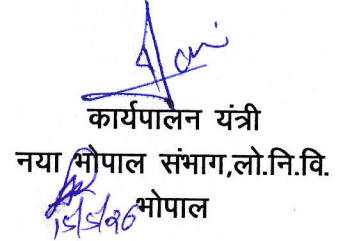 कार्यपालन यंत्री
नया भोपाल संभाग,लो.नि.वि.
15/5/26 भोपाल